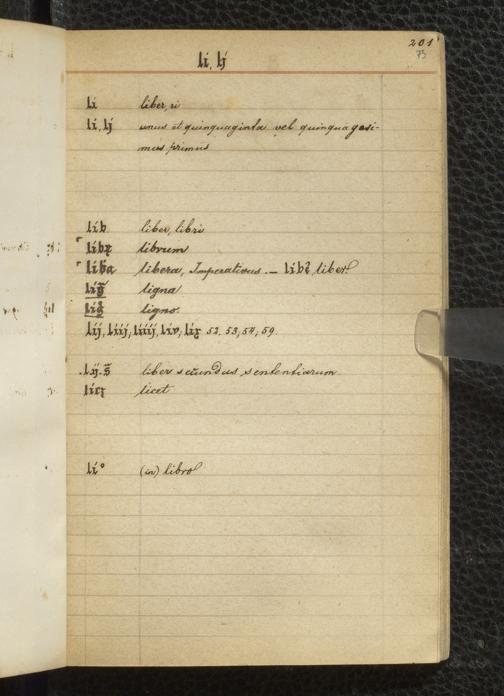 201
73
li, lj
li liber, ri
li, lj unus et quinquaginta vel quinquagesi-
mus primus
lib liber, libri
librum
libera, Imperativus. — liber
ligna
ligno.
lij, liij, liiij, liv, lix 52, 53, 54, 59.
.lij. s̄ liber secundus, sententiarum
licet
li° (in) libro